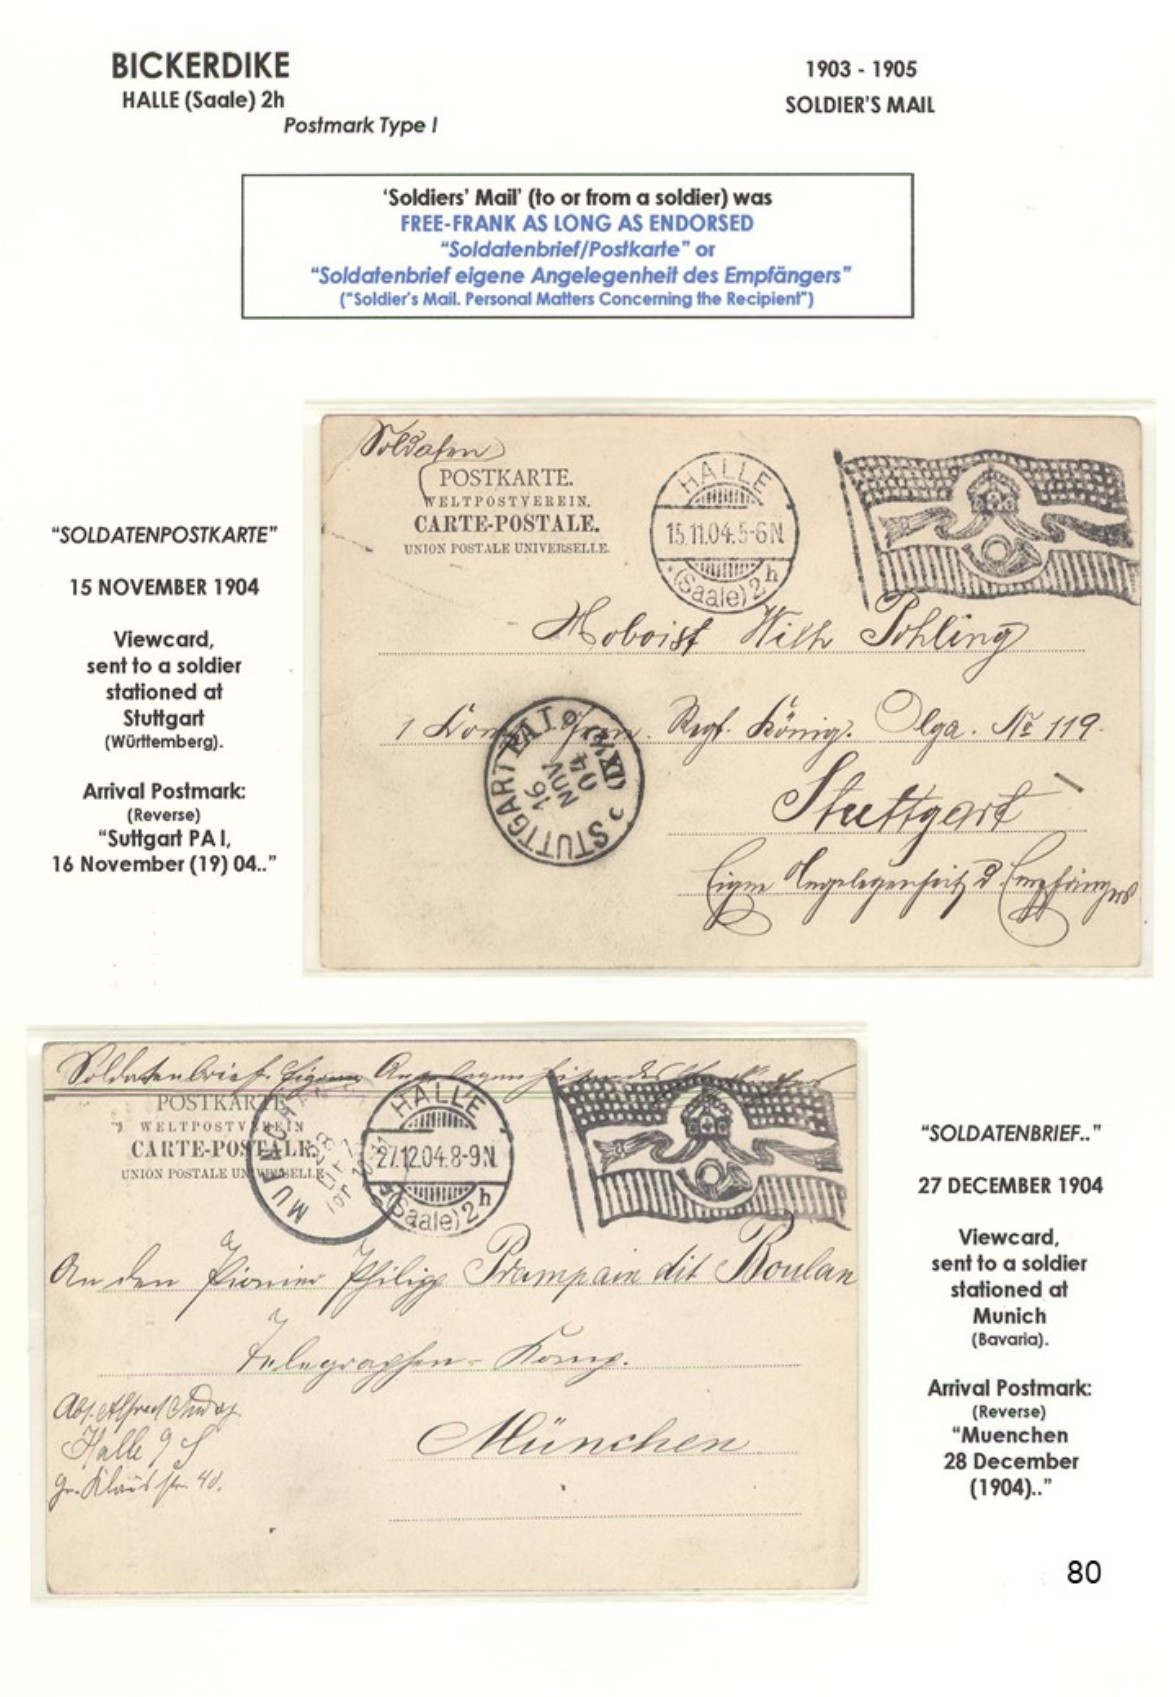 BICKERDIKE
HALLE (Saale) 2h
Postmark Type I
1903 - 1905
SOLDIER'S MAIL
‘Soldiers’ Mail’ (to or from a soldier) was
FREE-FRANK AS LONG AS ENDORSED
“Soldatenbrief/Postkarte” or
“Soldatenbrief eigene Angelegenheit des Empfängers”
("Soldier's Mail. Personal Matters Concerning the Recipient")
“SOLDATENPOSTKARTE”
15 NOVEMBER 1904
Viewcard,
sent to a soldier
stationed at
Stuttgart
(Württemberg).
Arrival Postmark:
(Reverse)
“Suttgart PA I,
16 November (19) 04..”
Soldaten
POSTKARTE.
WELTPOSTVEREIN.
CARTE-POSTALE.
UNION POSTALE UNIVERSELLE.
HALLE
15.11.04.5-6N
(Saale) 2h
Hoboist Wilh Pohling
1 Regt. König. Olga. No 119.
STUTTGART PA I
16
NOV
04
Stuttgart
Eigene Angelegenheit d. Empfängers
Soldatenbrief. Eigene
POSTKARTE
WELTPOSTVEREIN
CARTE-POSTALE.
UNION POSTALE UNIVERSELLE
MUENCHEN
28
HALLE
27.12.04.8-9N.
(Saale) 2h
An den Pionier Philipp dit Boulan
Telegraphen-Komp.
München
Abs. Alfred
Halle 9/S
Gr. Klausstr. 40.
“SOLDATENBRIEF..”
27 DECEMBER 1904
Viewcard,
sent to a soldier
stationed at
Munich
(Bavaria).
Arrival Postmark:
(Reverse)
“Muenchen
28 December
(1904)..”
80